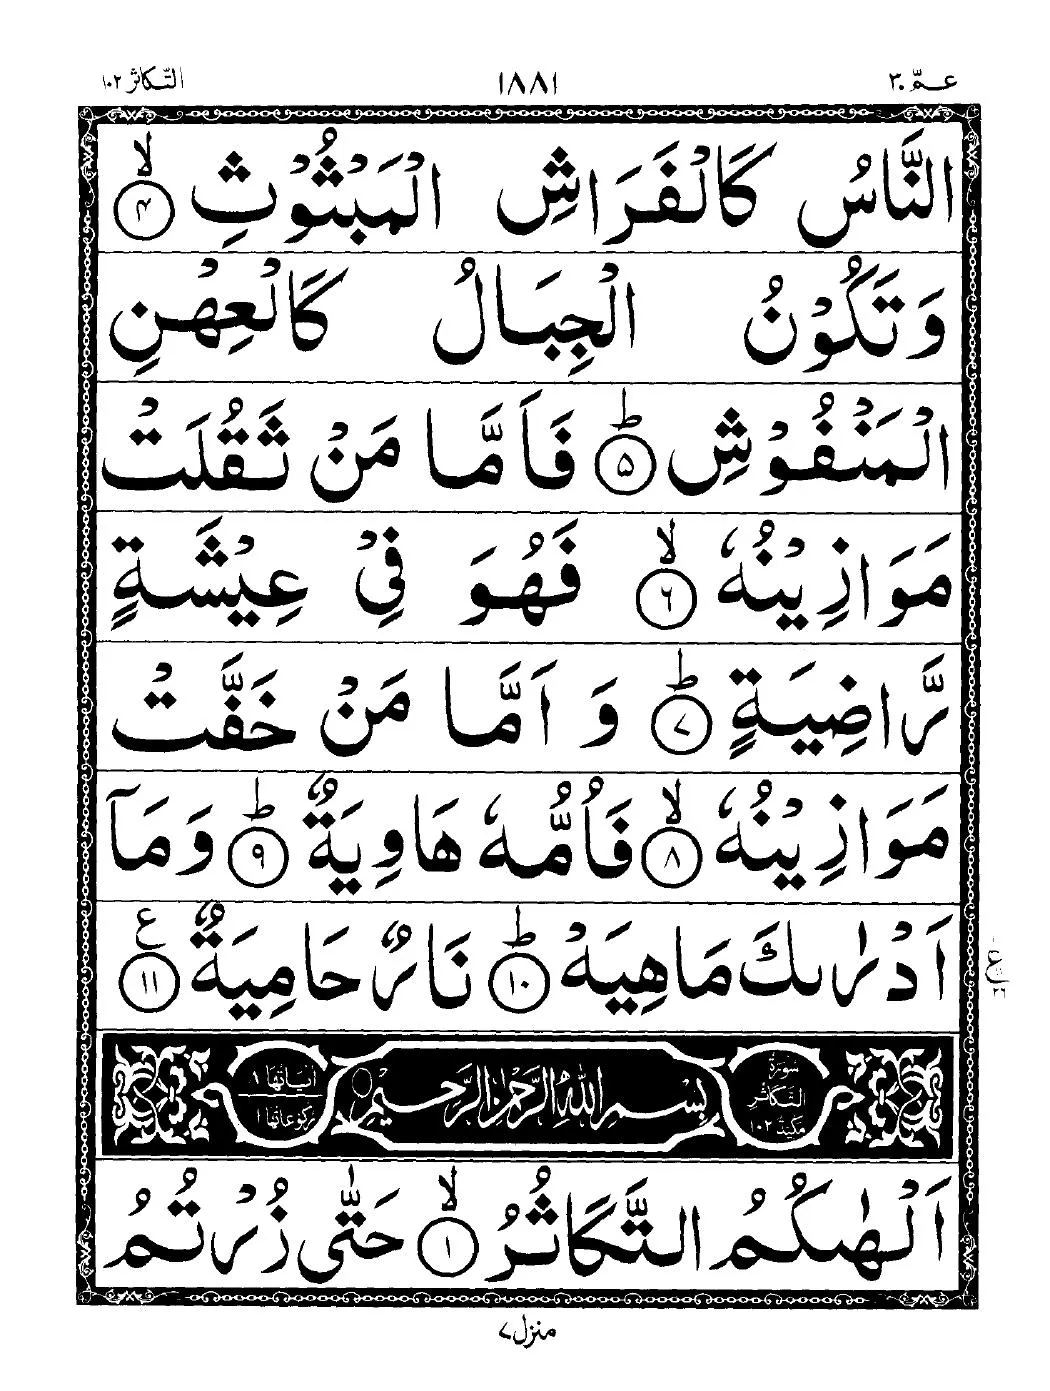 عمّ ۳۰
۱۸۸۱
التّکاثر ۱۰۲
النَّاسُ كَالْفَرَاشِ الْمَبْثُوْثِ ۙ﴿۴﴾
وَتَكُوْنُ الْجِبَالُ كَالْعِهْنِ
الْمَنْفُوْشِ ؕ﴿۵﴾ فَاَمَّا مَنْ ثَقُلَتْ
مَوَازِيْنُهٗ ۙ﴿۶﴾ فَهُوَ فِيْ عِيْشَةٍ
رَّاضِيَةٍ ؕ﴿۷﴾ وَ اَمَّا مَنْ خَفَّتْ
مَوَازِيْنُهٗ ۙ﴿۸﴾ فَاُمُّهٗ هَاوِيَةٌ ؕ﴿۹﴾ وَمَاۤ
اَدْرٰىكَ مَاهِيَهْ ؕ﴿۱۰﴾ نَارٌ حَامِيَةٌ ﴿۱۱﴾ ع
سورة التكاثر مكية ۱۰۲
بِسْمِ اللّٰهِ الرَّحْمٰنِ الرَّحِيْمِ
اٰیاتها
رکوعاتها ۱
اَلْهٰىكُمُ التَّكَاثُرُ ۙ﴿۱﴾ حَتّٰى زُرْتُمُ
منزل ۷